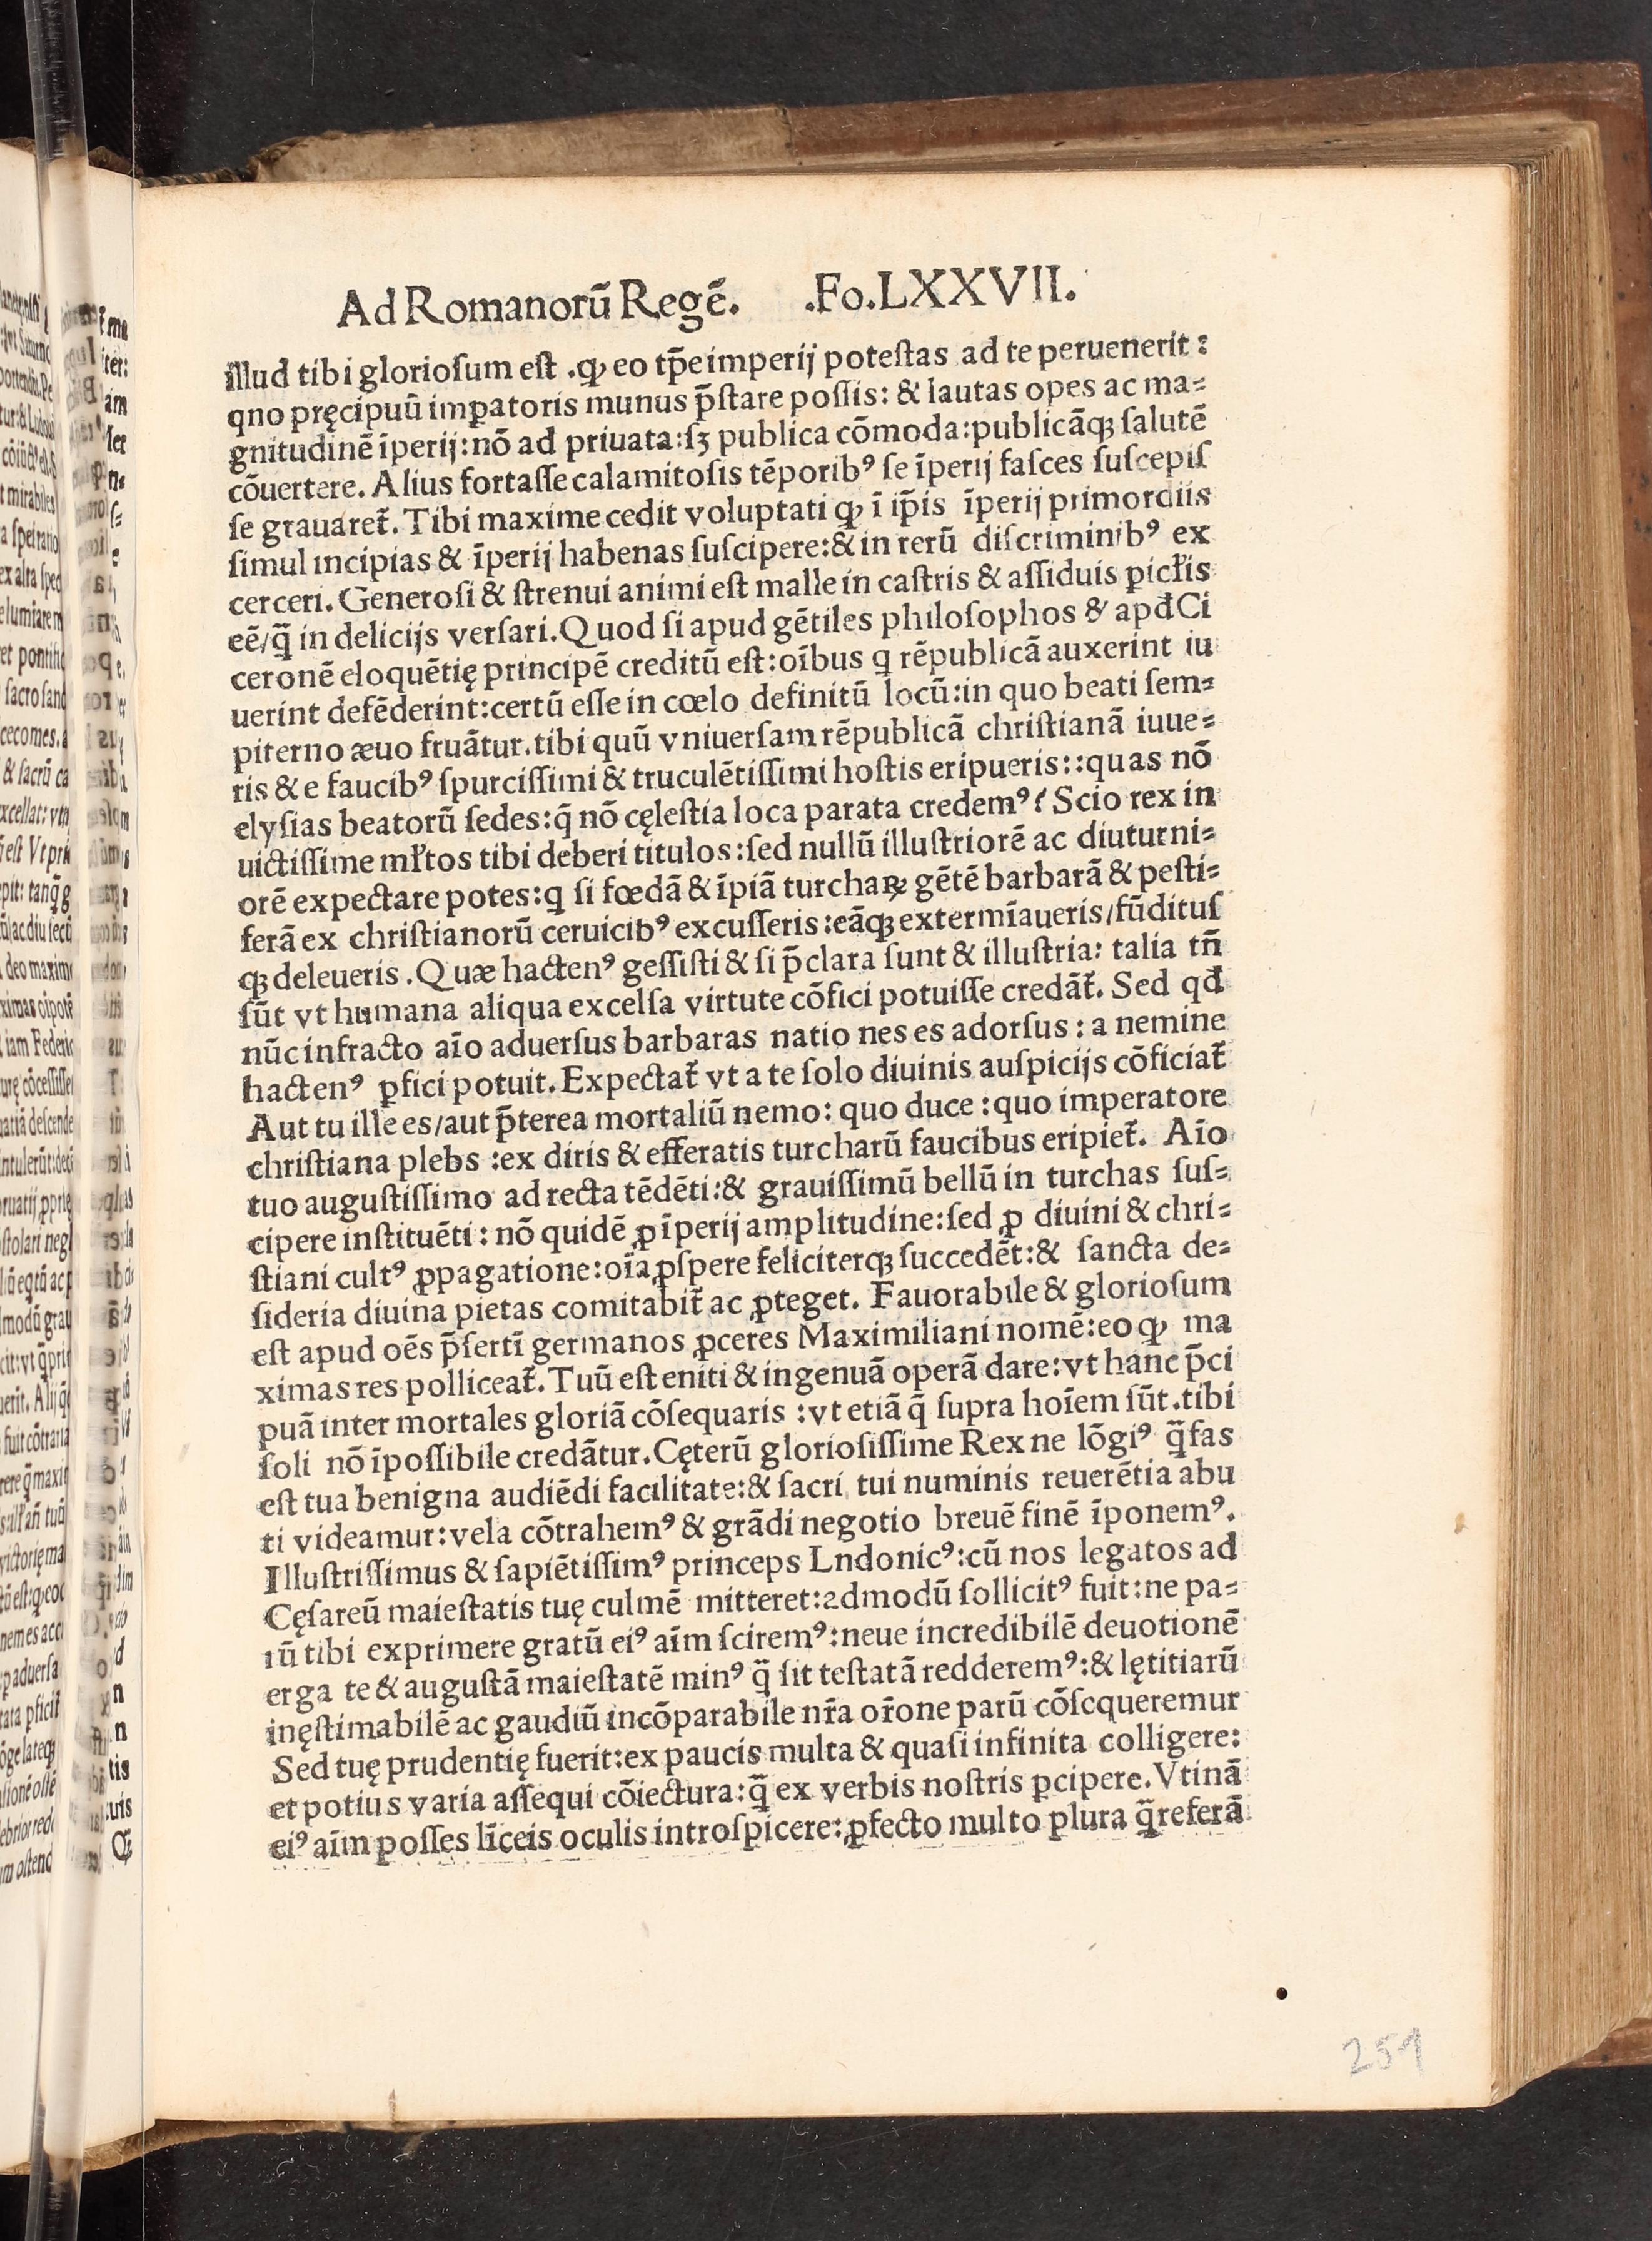 Ad Romanorū Regē. .Fo.LXXVII.
illud tibi glorioſum eſt .ꝙ eo tp̄e imperij poteſtas ad te peruenerit :
qno pręcipuū imꝑatoris munus p̄ſtare poſſis: & lautas opes ac ma⸗
gnitudinē īperij: nō ad priuata: ſꝫ publica cōmoda: publicāqꝫ ſalutē
cōuertere. Alius fortaſſe calamitoſis tēporibꝰ ſe īperij faſces ſuſcepiſ
ſe grauaret̄. Tibi maxime cedit voluptati ꝙ ī ip̄is īperij primordiis
ſimul incipias & īperij habenas ſuſcipere:& in rerū diſcriminibꝰ ex
cerceri. Generoſi & ſtrenui animi eſt malle in caſtris & aſſiduis ꝑicłis
eē/q̄ in delicijs verſari. Quod ſi apud gētiles philoſophos & apđ Ci
ceronē eloquētię principē creditū eſt: oībus q rēpublicā auxerint iu
uerint defēderint: certū eſſe in cœlo definitū locū: in quo beati ſem⸗
piterno æuo fruātur. tibi quū vniuerſam rēpublicā chriſtianā iuue⸗
ris & e faucibꝰ ſpurciſſimi & truculētiſſimi hoſtis eripueris: : quas nō
elyſias beatorū ſedes: q̄ nō cęleſtia loca parata credemꝰ? Scio rex in
uictiſſime młtos tibi deberi titulos: ſed nullū illuſtriorē ac diuturni⸗
orē expectare potes: q ſi fœdā & īpiā turchaꝝ gētē barbarā & peſti⸗
ferā ex chriſtianorū ceruicibꝰ excuſſeris: eāqꝫ extermīaueris/fūdituſ
qꝫ deleueris. Quæ hactenꝰ geſſiſti & ſi p̄clara ſunt & illuſtria: talia tn̄
ſūt vt humana aliqua excelſa virtute cōfici potuiſſe credāt̄. Sed qđ
nūc infracto aīo aduerſus barbaras natio nes es adorſus : a nemine
hactenꝰ ꝑfici potuit. Expectat̄ vt a te ſolo diuinis auſpicijs cōficiat̄
Aut tu ille es/aut p̄terea mortaliū nemo: quo duce : quo imperatore
chriſtiana plebs : ex diris & efferatis turcharū faucibus eripiet̄. Aīo
tuo auguſtiſſimo ad recta tēdēti:& grauiſſimū bellū in turchas ſuſ⸗
cipere inſtituēti : nō quidē ꝓ īperij amplitudine: ſed ꝓ diuini & chri⸗
ſtiani cultꝰ ꝓpagatione: oīa ꝓſpere feliciterqꝫ ſuccedēt:& ſancta de⸗
ſideria diuina pietas comitabit̄ ac ꝓteget. Fauorabile & glorioſum
eſt apud oēs p̄ſertī germanos ꝓceres Maximiliani nomē: eo ꝙ ma
ximas res polliceat̄. Tuū eſt eniti & ingenuā operā dare: vt hanc p̄ci
puā inter mortales gloriā cōſequaris : vt etiā q̄ ſupra hoīem ſūt .tibi
ſoli nō īpoſſibile credātur. Cęterū glorioſiſſime Rex ne lōgiꝰ q̄ fas
eſt tua benigna audiēdi facilitate:& ſacri tui numinis reuerētia abu
ti videamur: vela cōtrahemꝰ & grādi negotio breuē finē īponemꝰ.
Illuſtriſſimus & ſapiētiſſimꝰ princeps Lndonicꝰ: cū nos legatos ad
Cęſareū maieſtatis tuę culmē mitteret: admodū ſollicitꝰ fuit: ne pa⸗
rū tibi exprimere gratū eiꝰ aīm ſciremꝰ: neue incredibilē deuotionē
erga te & auguſtā maieſtatē minꝰ q̄ ſit teſtatā redderemꝰ:& lętitiarū
inęſtimabilē ac gaudiū incōparabile nr̄a or̄one parū cōſcqueremur
Sed tuę prudentię fuerit: ex paucis multa & quaſi infinita colligere:
et potius varia aſſequi cōiectura: q̄ ex verbis noſtris ꝑcipere. Vtinā
eiꝰ aīm poſſes līceis oculis introſpicere: ꝓfecto multo plura q̄ referā
259